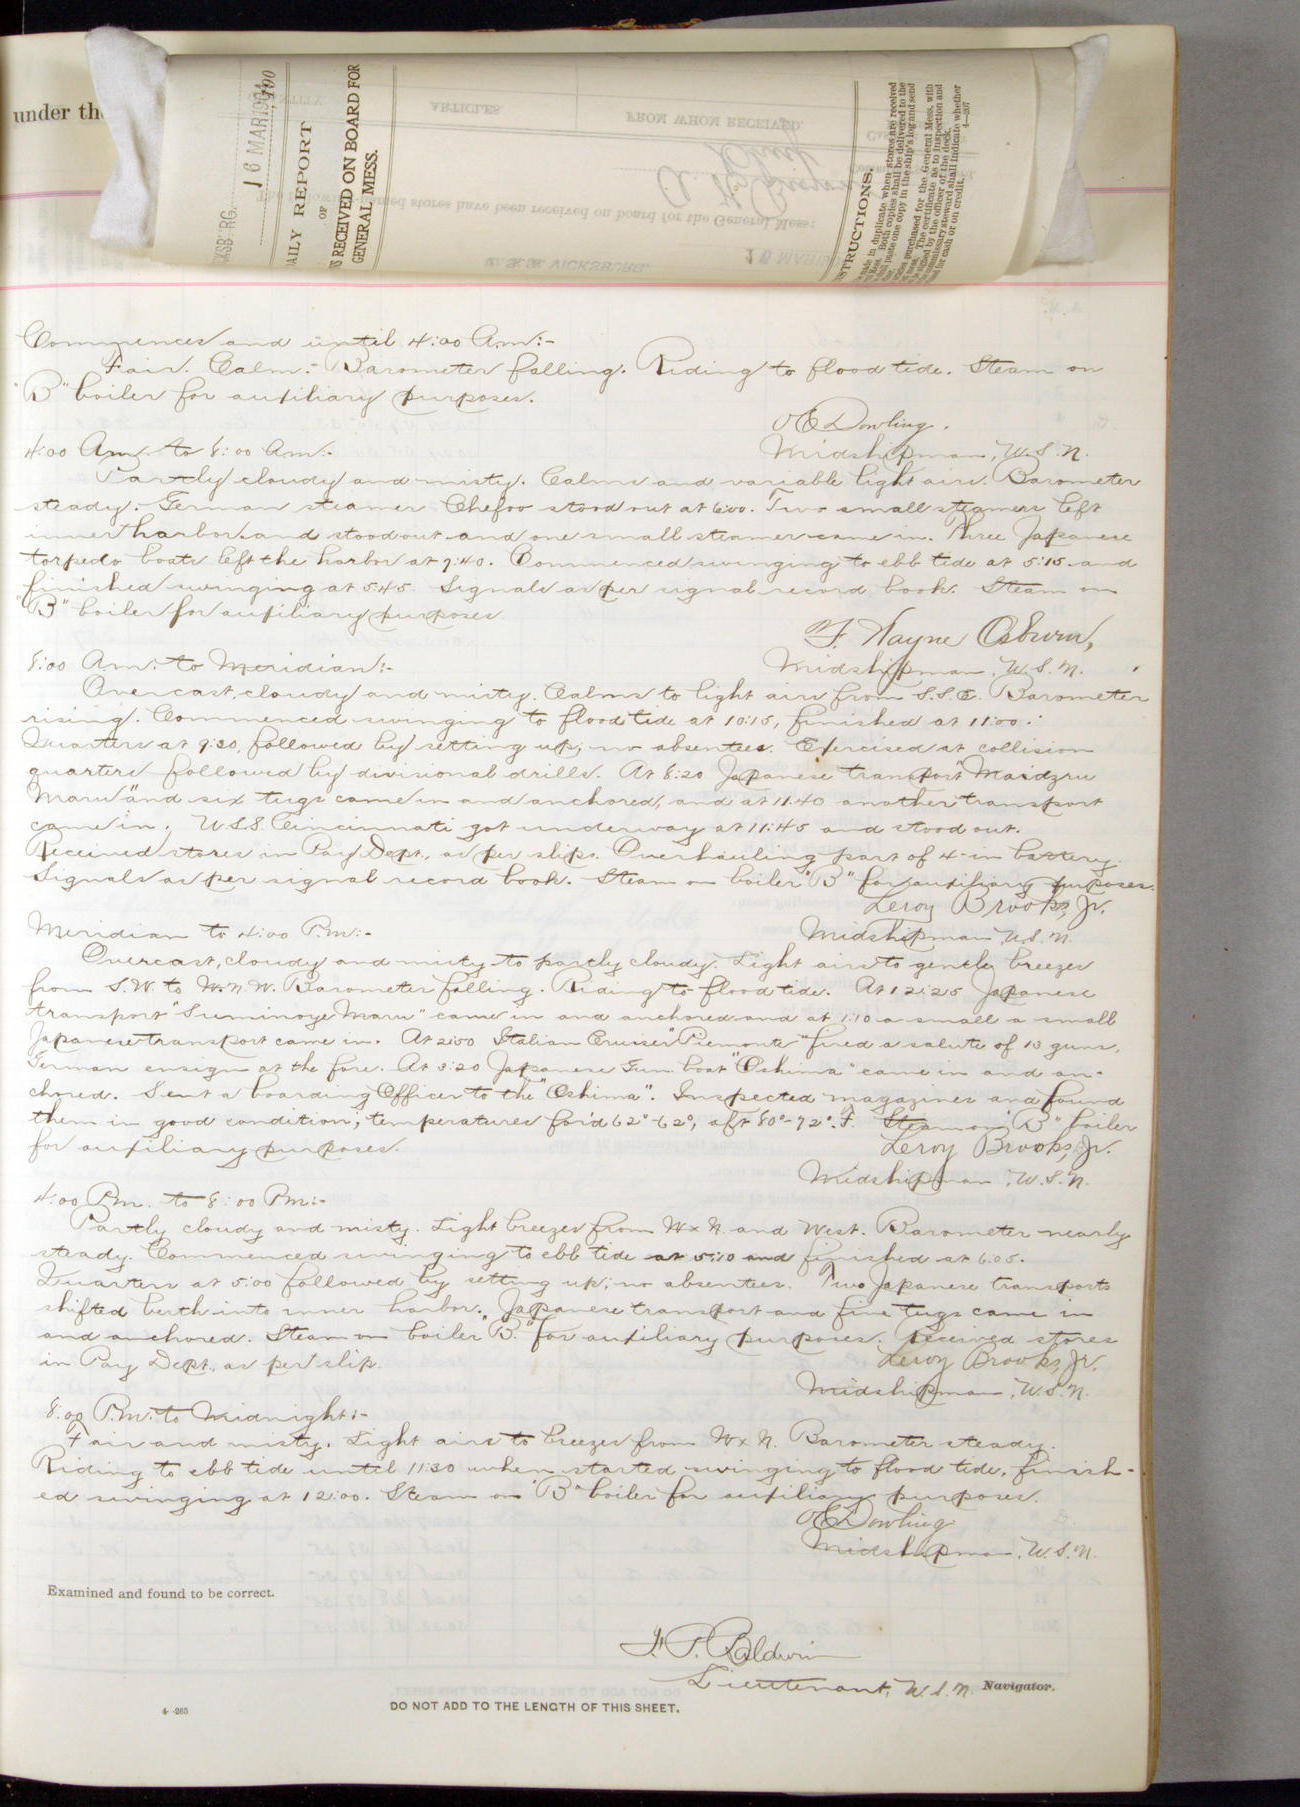 under the
16 MAR 1904
190
KSBURG.
AILY REPORT
OF
S RECEIVED ON BOARD FOR
GENERAL MESS.
ARTICLES
FROM WHOM RECEIVED.
stores have been received on board for the General Mess:
U.S.S. VICKSBURG.
16 MAR
STRUCTIONS.
in duplicate when stores are received
Both copies shall be delivered to the
paste one copy in the ship's log and send
purchased for the General Mess, with
The certificate as to inspection and
signed by the officer of the deck.
commissary steward shall indicate whether
for cash or on credit.
4—207
Commences and until 4:00 A.m:-
Fair. Calm:- Barometer falling. Riding to flood tide. Steam on
"B" boiler for auxiliary purposes.
O E Dowling.
Midshipman, U.S.N.
4:00 Am. to 8:00 Am:-
Partly cloudy and misty. Calms and variable light airs. Barometer
steady. German steamer Chefoo stood out at 6:00. Two small steamers left
inner harbor and stood out and one small steamer came in. Three Japanese
torpedo boats left the harbor at 7:40. Commenced swinging to ebb tide at 5:15 and
finished swinging at 5:45. Signals as per signal record book. Steam on
"B" boiler for auxiliary purposes
W. Wayne Osburn,
Midshipman, U.S.N.
8:00 Am. to Meridian:-
Overcast, cloudy and misty. Calms to light airs from S.S.E. Barometer
rising. Commenced swinging to flood tide at 10:15, finished at 11:00.
Quarters at 9:30, followed by setting up; no absentees. Exercised at collision
quarters followed by divisional drills. At 8:20 Japanese transport "Maidzru
Maru" and six tugs came in and anchored, and at 11:40 another transport
came in. U.S.S. Cincinnati got underway at 11:45 and stood out.
Received stores in Pay Dept., as per slips. Overhauling part of 4-in battery.
Signals as per signal record book. Steam on boiler "B" for auxiliary purposes.
Leroy Brooks, Jr.
Midshipman, U.S.N.
Meridian to 4:00 P.m:-
Overcast, cloudy and misty to partly cloudy. Light airs to gentle breezes
from S.W. to W.N.W. Barometer falling. Riding to flood tide. At 12:25 Japanese
transport "Suminoye Maru" came in and anchored and at 1:10 a small a small
Japanese transport came in. At 2:50 Italian Cruiser "Piemonte" fired a salute of 13 guns,
German ensign at the fore. At 3:20 Japanese Gun boat "Oshima" came in and an-
chored. Sent a boarding Officer to the "Oshima". Inspected magazines and found
them in good condition; temperatures for'd 62°-62°, aft 80°-72°. F. Steam on "B" boiler
for auxiliary purposes.
Leroy Brooks, Jr.
Midshipman, U.S.N.
4:00 Pm. to 8:00 Pm:-
Partly cloudy and misty. Light breezes from W x N. and West. Barometer nearly
steady. Commenced swinging to ebb tide at 5:10 and finished at 6:05.
Quarters at 5:00 followed by setting up; no absentees. Two Japanese transports
shifted berth into inner harbor. Japanese transport and five tugs came in
and anchored. Steam on boiler "B." for auxiliary purposes. Received stores
in Pay Dept., as per slip.
Leroy Brooks, Jr.
Midshipman, U.S.N.
8:00 P.m. to Midnight:-
Fair and misty. Light airs to breezes from W x N. Barometer steady.
Riding to ebb tide until 11:30 when started swinging to flood tide, finish-
ed swinging at 12:00. Steam on "B" boiler for auxiliary purposes.
O E Dowling
Midshipman, U.S.N.
Examined and found to be correct.
Baldwin
Lieutenant, U.S.N. Navigator.
4—265
DO NOT ADD TO THE LENGTH OF THIS SHEET.